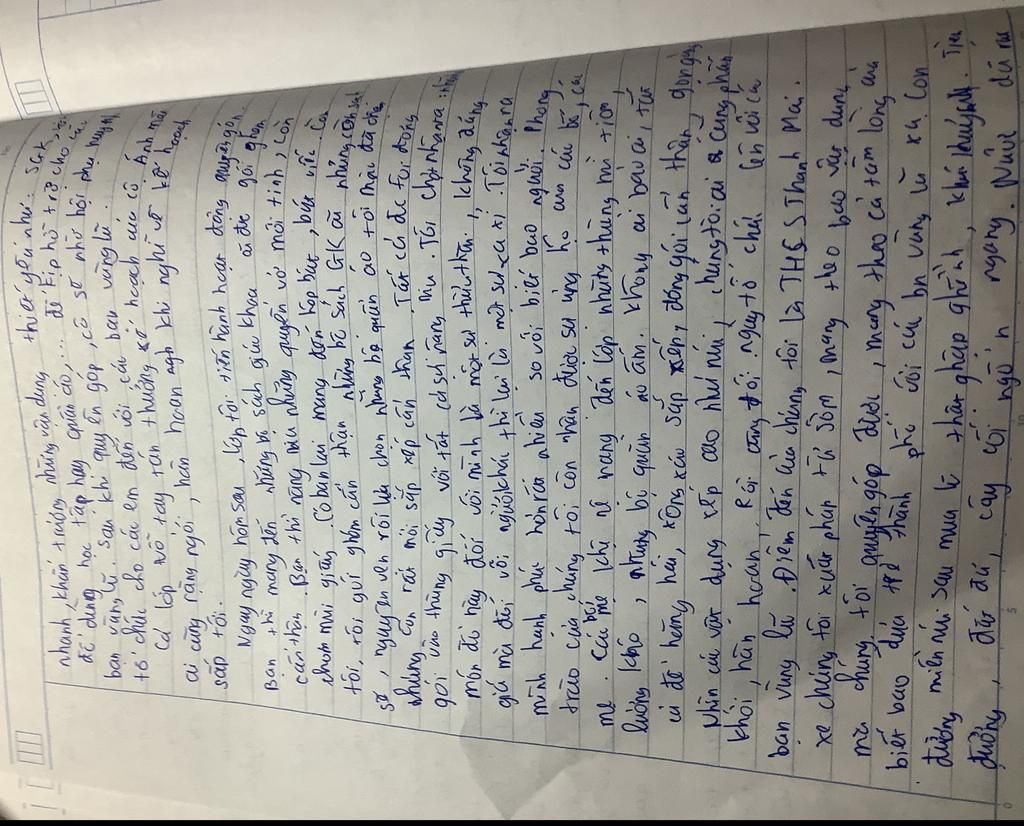 nhanh, khẩn trương những vận dụng thiết yếu như: SGK,
đồ dùng học tập hay quần áo,... để kịp hỗ trợ cho các
bạn vùng lũ. Sau khi quyên góp, cô sẽ nhờ hội phụ huynh
tổ chức cho các em đến với các bạn vùng lũ.
Cả lớp vỗ tay tán thưởng kế hoạch của cô Ánh mà
ai cũng rạng ngời, hân hoan nghĩ về kế hoạch
sắp tới.
Ngay ngày hôm sau, lớp tôi tiến hành hoạt động quyên góp.
Bạn thì mang đến những bộ sách giáo khoa cũ được gói gọn
cẩn thận. Bạn thì nâng niu những quyển vở mới tinh, còn
thơm mùi giấy. Có bạn lại mang đến hộp bút, bút viết. Còn
tôi, tôi gửi gắm cẩn thận những bộ sách GK cũ nhưng còn sạch
sẽ, nguyên vẹn rồi lựa chọn những bộ quần áo tôi mặc đã chật
nhưng còn rất mới sắp xếp cẩn thận. Tất cả để tôi đóng
gói vào thùng giấy với tất cả sự nâng niu. Tôi chợt nhận ra những
món đồ này đối với mình là một sự thừa thãi, không đáng
giá mà đối với người khác thì lại là một sự xa xỉ. Tôi nhận ra
mình hạnh phúc hơn rất nhiều so với biết bao người. Phong
trào của chúng tôi còn nhận được sự ủng hộ của các bố, các
mẹ. Các bố mẹ khệ nệ mang đến lớp những thùng mì tôm,
lương khô, những bộ quần áo ấm. Không ai bảo ai, tất
cả đề hăng hái, xông xáo sắp xếp, đóng gói cẩn thận, gọn gàng.
Nhìn các vật dụng xếp cao như núi, chúng tôi ai cũng phấn
khởi, hân hoan. Rồi cũng tới ngày tổ chức lên với các
bạn vùng lũ. Điểm đến của chúng tôi là THCS Thanh Mai.
Xe chúng tôi xuất phát từ sớm, mang theo bao vận dụng
mà chúng tôi quyên góp được, mang theo cả tấm lòng của
biết bao đứa trẻ thành phố với các bạn vùng lũ xa. Con
đường miền núi sau mưa lũ thật gập ghềnh, khúc khuỷu. Trên
đường, đất đá, cây cối ngổn ngang. Nước lũ rú